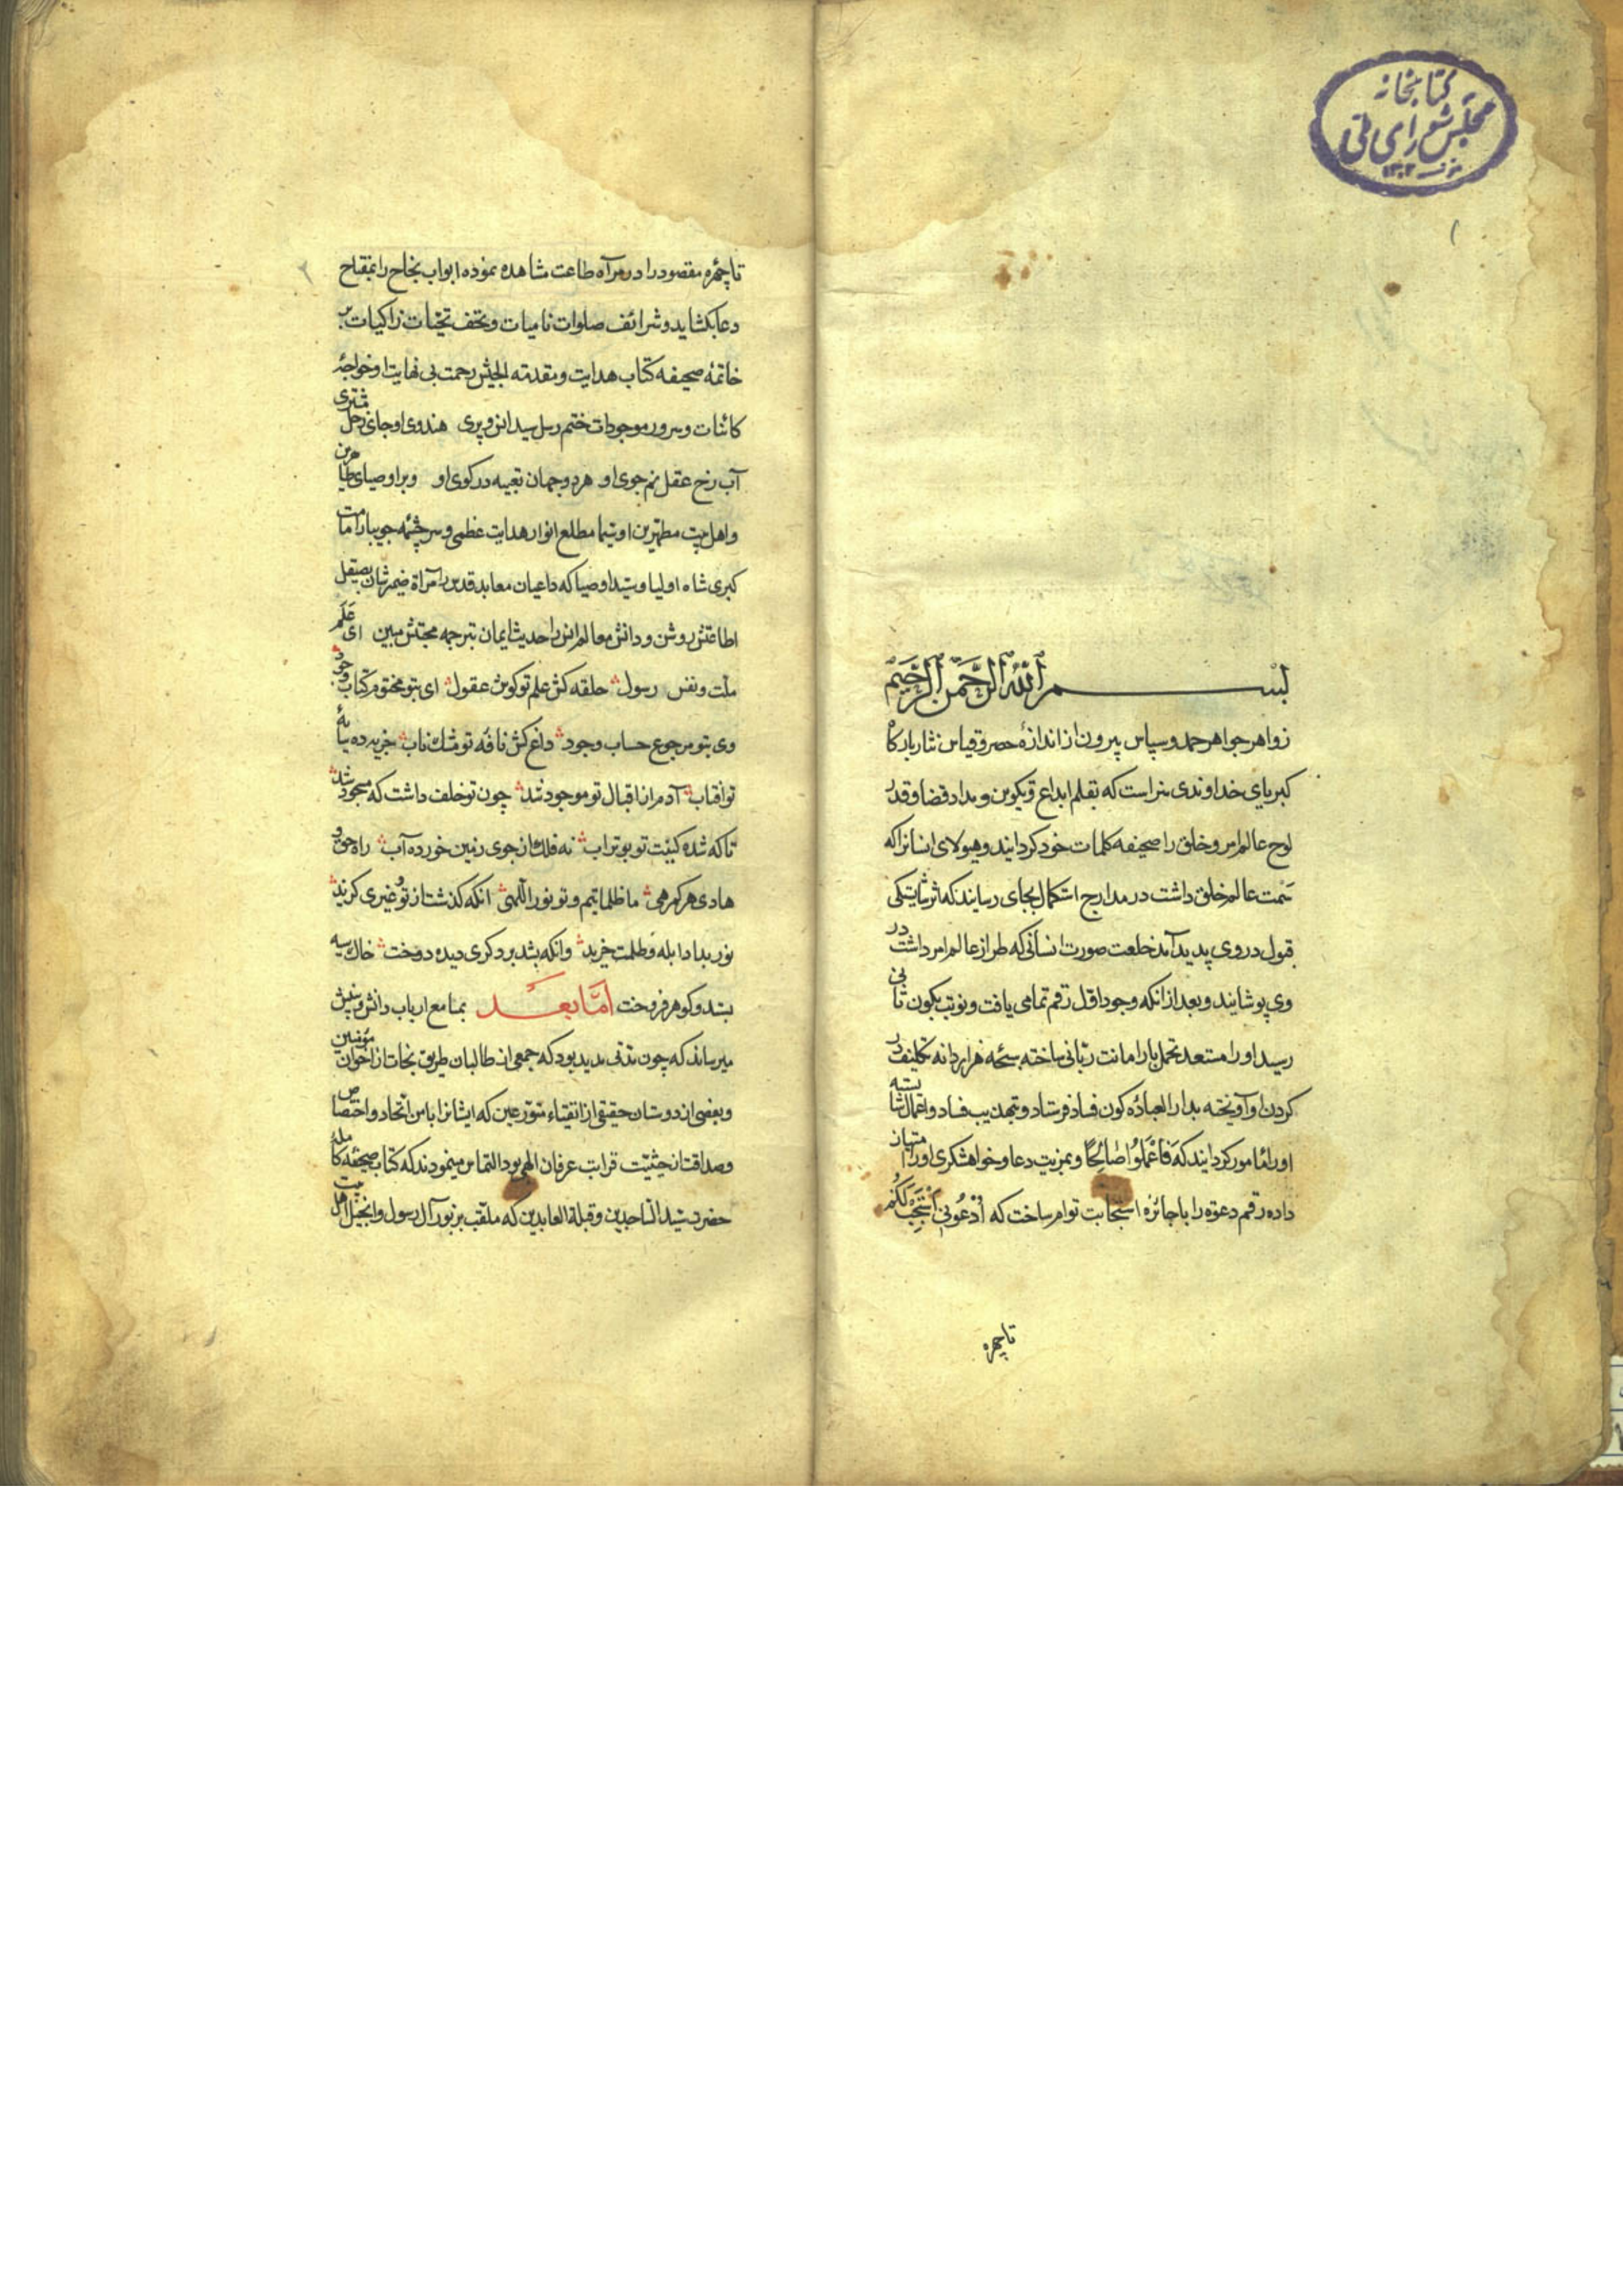 كتابخانه
مجلس شورای ملی
۱۳۰۲
۱
بسم الله الرحمن الرحیم
زواهر جواهر حمد و سپاس بیرون از اندازهٔ حصر و قیاس نثار بارکاه
کبریای خداوندی سزاست که بقلم ابداع و تکوین و مداد قضا و قدر
لوح عالم امر و خلق را صحیفه کلمات خود کردانید و هیولای انسانرا که
سمت عالم خلق داشت در مدارج استکمال بجای رسانید که اثر شایستکی
قبول در وی پدید آمد خلعت صورت انسانی که طراز عالم امر داشت در
وی پوشانید و بعد از انکه وجود اول رقم تمامی یافت و نوبت بکون ثانی
رسید او را مستعد تحمل بار امانت ربانی ساخته سبحه هزار دانه تکلیف در
کردن او آویخته بدار العباده کون فساد فرستاد و بتهذیب فساد و اعمال شایسته
او را مامور کردانید که فَاعْمَلُوا صَالِحًا و بمزیت دعا و خواهشکری او را امتیاز
داده رقم دعوة را با جائزه استجابت توام ساخت که اُدْعُونی اَسْتَجِبْ لَکُمْ
تا چهره
۲
تا چهره مقصود را در مرآه طاعت مشاهده نموده ابواب نجاح را بمفتاح
دعا بکشاید و شرائف صلوات نامیات و تحف تحیّات زاکیات بر
خاتمهٔ صحیفه کتاب هدایت و مقدمته الجیش رحمت بی نهایت او خواجهٔ
کائنات و سرور موجودات ختم رسل سید انس و پری هندوی او جای زحل مشتری
آب رخ عقل نم جوی او هر دو جهان تعبیه در کوی او و بر اوصیای طاهرین
و اهل بیت مطهرین او سیّما مطلع انوار هدایت عظمی و سرچشمه جویبار امامت
کبری شاه اولیا و سید اوصیا که داعیان معابد قدس را مرآة ضمیرشان بصیقل
اطاعتش روشن و دانش معالم انس را حدیث ایمان بترجمه محبتش مبین ای عَلَم
ملّت و نفس رسول حلقه کش علم تو کوش عقول ای بتو مختوم کتاب وجود
وی بتو مرجوع حساب وجود داغ کش نافه تو مشک ناب جزیه ده سایهٔ
تو آفتاب آدم از اقبال تو موجود شد چون تو خلف داشت که مسجود شد
تا که شده کنیت تو بوتراب نه فلک از جوی زمین خورده آب راه حق و
هادی هر کمرهی ما ظلماتیم و تو نور اللّهی آنکه کذشت از تو و غیری کزید
نور بداد ابله و ظلمت خرید وانکه بشد بر دکری دیده دوخت خاک سیه
بستد و کوهر فروخت امّا بعد بمسامع ارباب دانش و بینش
میرساند که چون مدتی مدید بود که جمعی از طالبان طریق نجات از اخوان مؤمنین
و بعضی از دوستان حقیقی از اتقیاء متورعین که ایشانرا با من اتحاد و اختصاص
و صداقتان حیثیّت قرابت عرفان الهی بود التماس مینمودند که کتاب صحیفه کامله
حضرت سیّد الساجدین و قبلة العابدین که ملقب بزبور آل رسول و انجیل اهل بیت